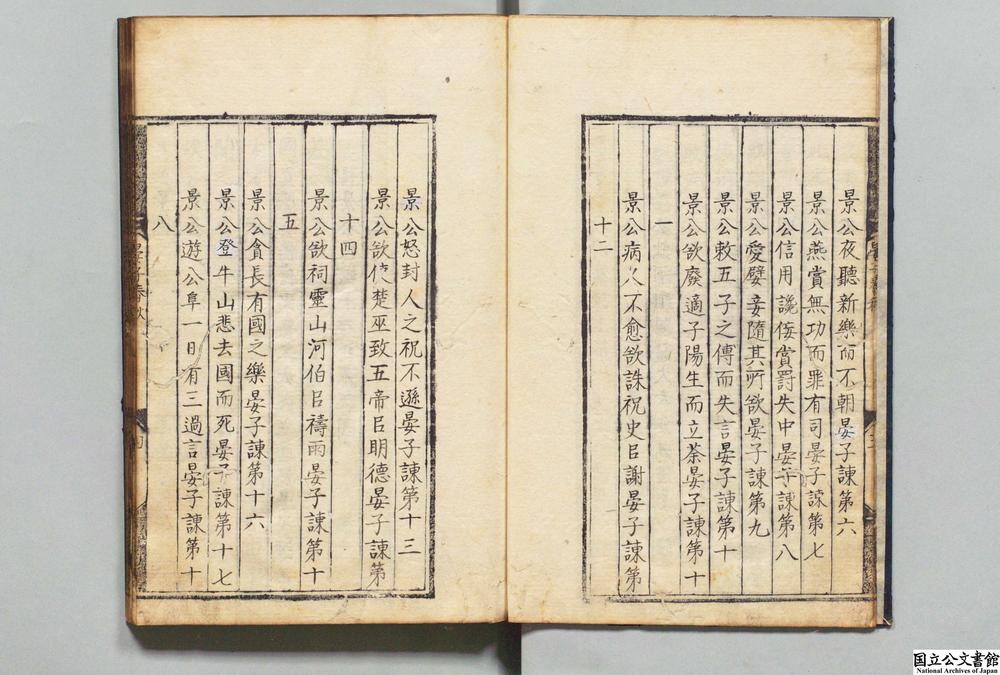 景公夜聽新樂而不朝晏子諫第六
景公燕賞無功而罪有司晏子諫第七
景公信用讒佞賞罰失中晏子諫第八
景公愛嬖妾隨其所欲晏子諫第九
景公敕五子之傅而失言晏子諫第十
景公欲廢適子陽生而立荼晏子諫第十
一
景公病久不愈欲誅祝史㠯謝晏子諫第
十二
景公怒封人之祝不遜晏子諫第十三
景公欲使楚巫致五帝㠯明德晏子諫第
十四
景公欲祠靈山河伯㠯禱雨晏子諫第十
五
景公貪長有國之樂晏子諫第十六
景公登牛山悲去國而死晏子諫第十七
景公遊公阜一日有三過言晏子諫第十
八
晏子春秋
国立公文書館
National Archives of Japan